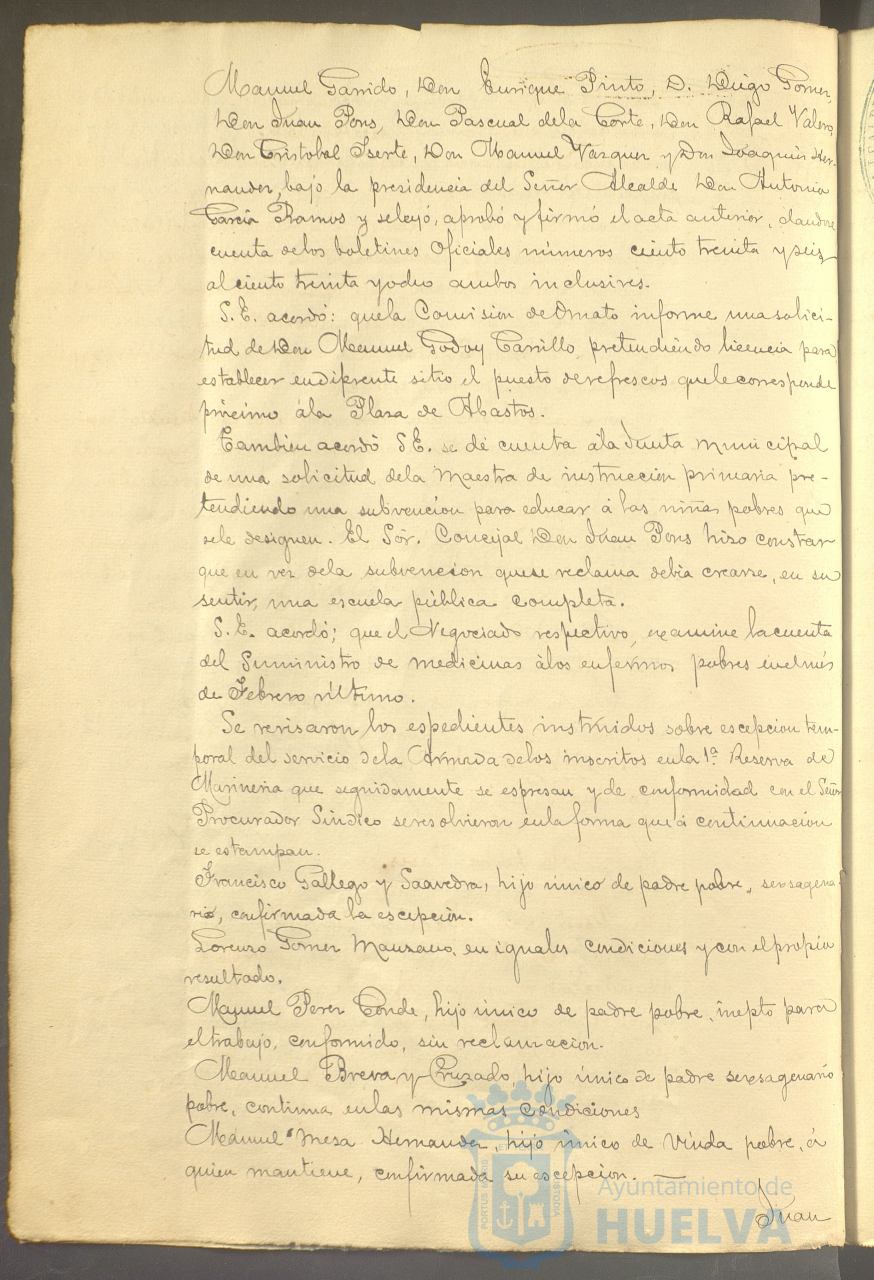 Manuel Garrido, Don Enrique Pinto, D. Diego Gomez,
Don Juan Pons, Don Pascual dela Corte, Don Rafael Valero,
Don Cristobal Iserte, Don Manuel Vazquez y Don Joaquin Her-
nandez, bajo la presidencia del Señor Alcalde Don Antonio
Garcia Ramos y seleyó, aprobó y firmó el acta anterior, dandose
cuenta delos boletines oficiales números ciento treinta y seis
al ciento treinta y ocho ambos inclusives.
S. E. acordó: quela Comision de Ornato informe una solici-
tud de Don Manuel Godoy Carrillo pretendiendo licencia para
establecer en diferente sitio el puesto de refrescos que le corresponde
próximo ála Plaza de Abastos.
Tambien acordó S.E. se dé cuenta ála Junta municipal
de una solicitud dela Maestra de instruccion primaria pre-
tendiendo una subvencion para educar á las niñas pobres que
sele designen. El Sór. Concejal Don Juan Pons hizo constar
que en vez dela subvencion quese reclama debia crearse, en su
sentir, una escuela pública completa.
S. E. acordó; que el Negociado respectivo, examine la cuenta
del Suministro de medicinas álos enfermos pobres en el mes
de Febrero último.
Se revisaron los espedientes instruidos sobre escepcion tem-
poral del servicio dela Armada delos inscritos en la 1ª Reserva de
Marineria que seguidamente se espresan y de conformidad con el Señor
Procurador Sindico se resolvieron en la forma que á continuacion
se estampan.
Francisco Gallego y Saavedra, hijo único de padre pobre, sexsagena-
rio, confirmada la escepción.
Lorenzo Gomez Manzano, en iguales condiciones y con el propio
resultado.
Manuel Perez Conde, hijo único de padre pobre, inepto para
el trabajo, conformido, sin reclamacion.
Manuel Breva y Cruzado, hijo único de padre sexsagenario
pobre, continua en las mismas condiciones
Manuel Mesa Hernandez, hijo único de Viuda pobre, á
quien mantiene, confirmada su escepcion.
Juan
PORTUS MARIS ET TERRAE CUSTODIA
Ayuntamiento de
HUELVA